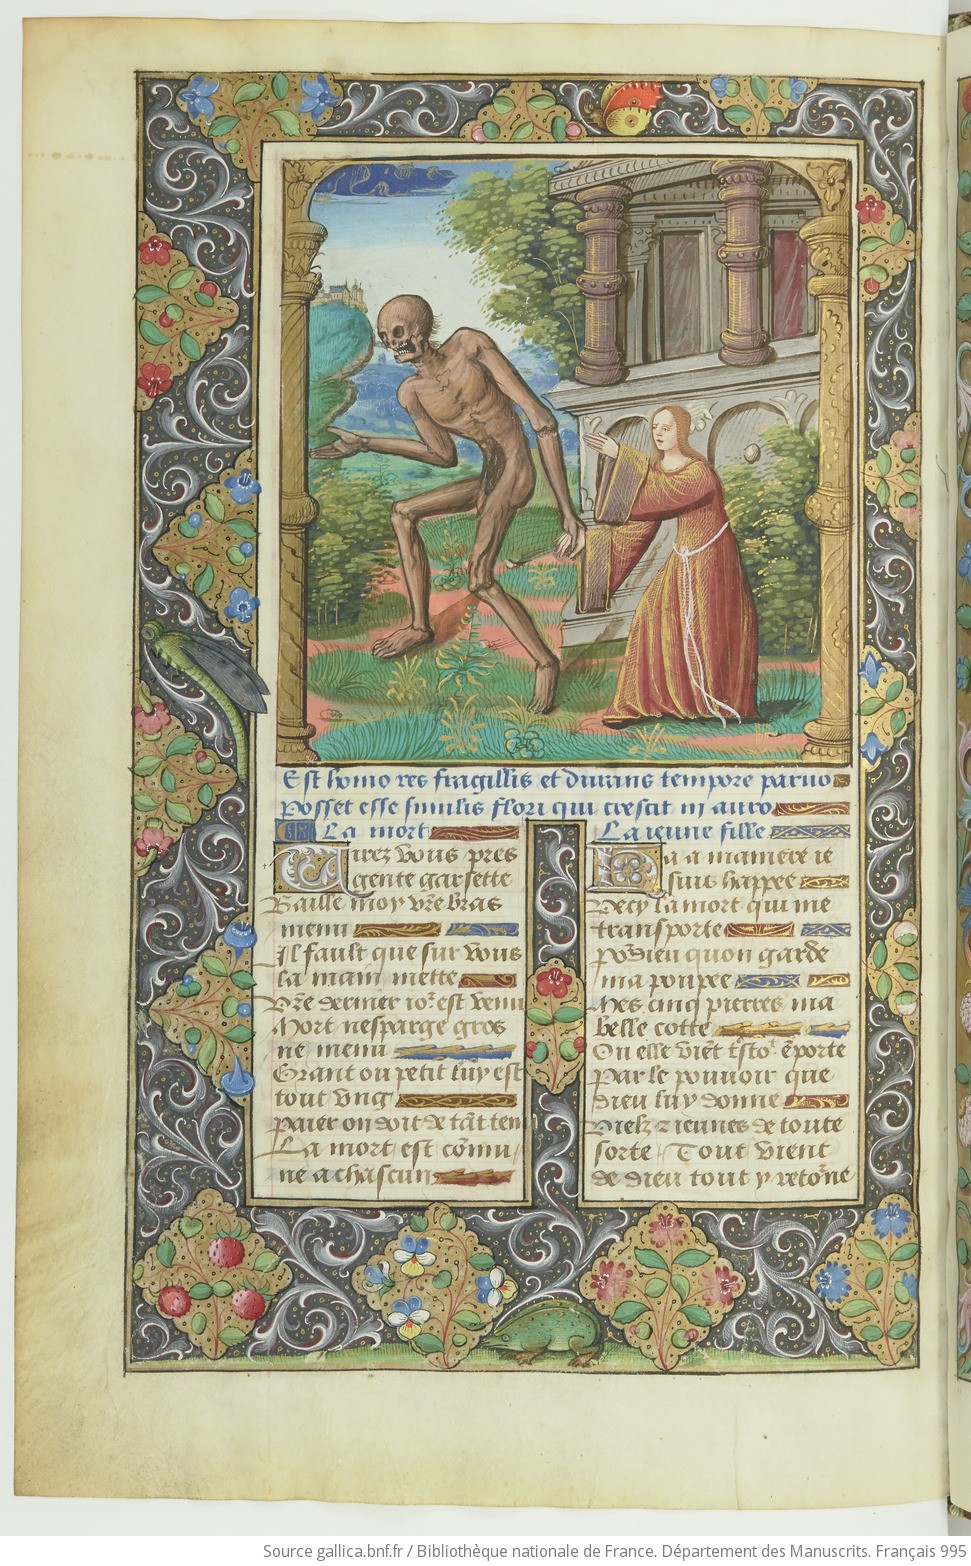 Est homo res fragillis et durans tempore paruo
Posset esse similis flori qui crescit in auro
La mort
Tirez vous pres
gente garsette
Baille moy vr̃e bras
menu
Il fault que sur vous
la main mette
Vr̃e dernier io᷑ est venu
Mort nespargẽ gros
ne menu
Grant ou petit luy est
tout vng
paier on doit de tãt tenu
La mort est cõmu
ne a chascun
La ieune fille
Ha a maniere ie
suis happee
Vecy la mort qui me
transporte
po᷑ dieu quon garde
ma poupee
Mes cinq pierres ma
belle cotte
Ou elle viẽt tr̃sto᷑ ẽporte
Par le pouuoir que
dieu luy donne
Vielz ⁊ ieunes de toute
sorte Tout vient
de dieu tout y reto᷑ne
Source gallica.bnf.fr / Bibliothèque nationale de France. Département des Manuscrits. Français 995